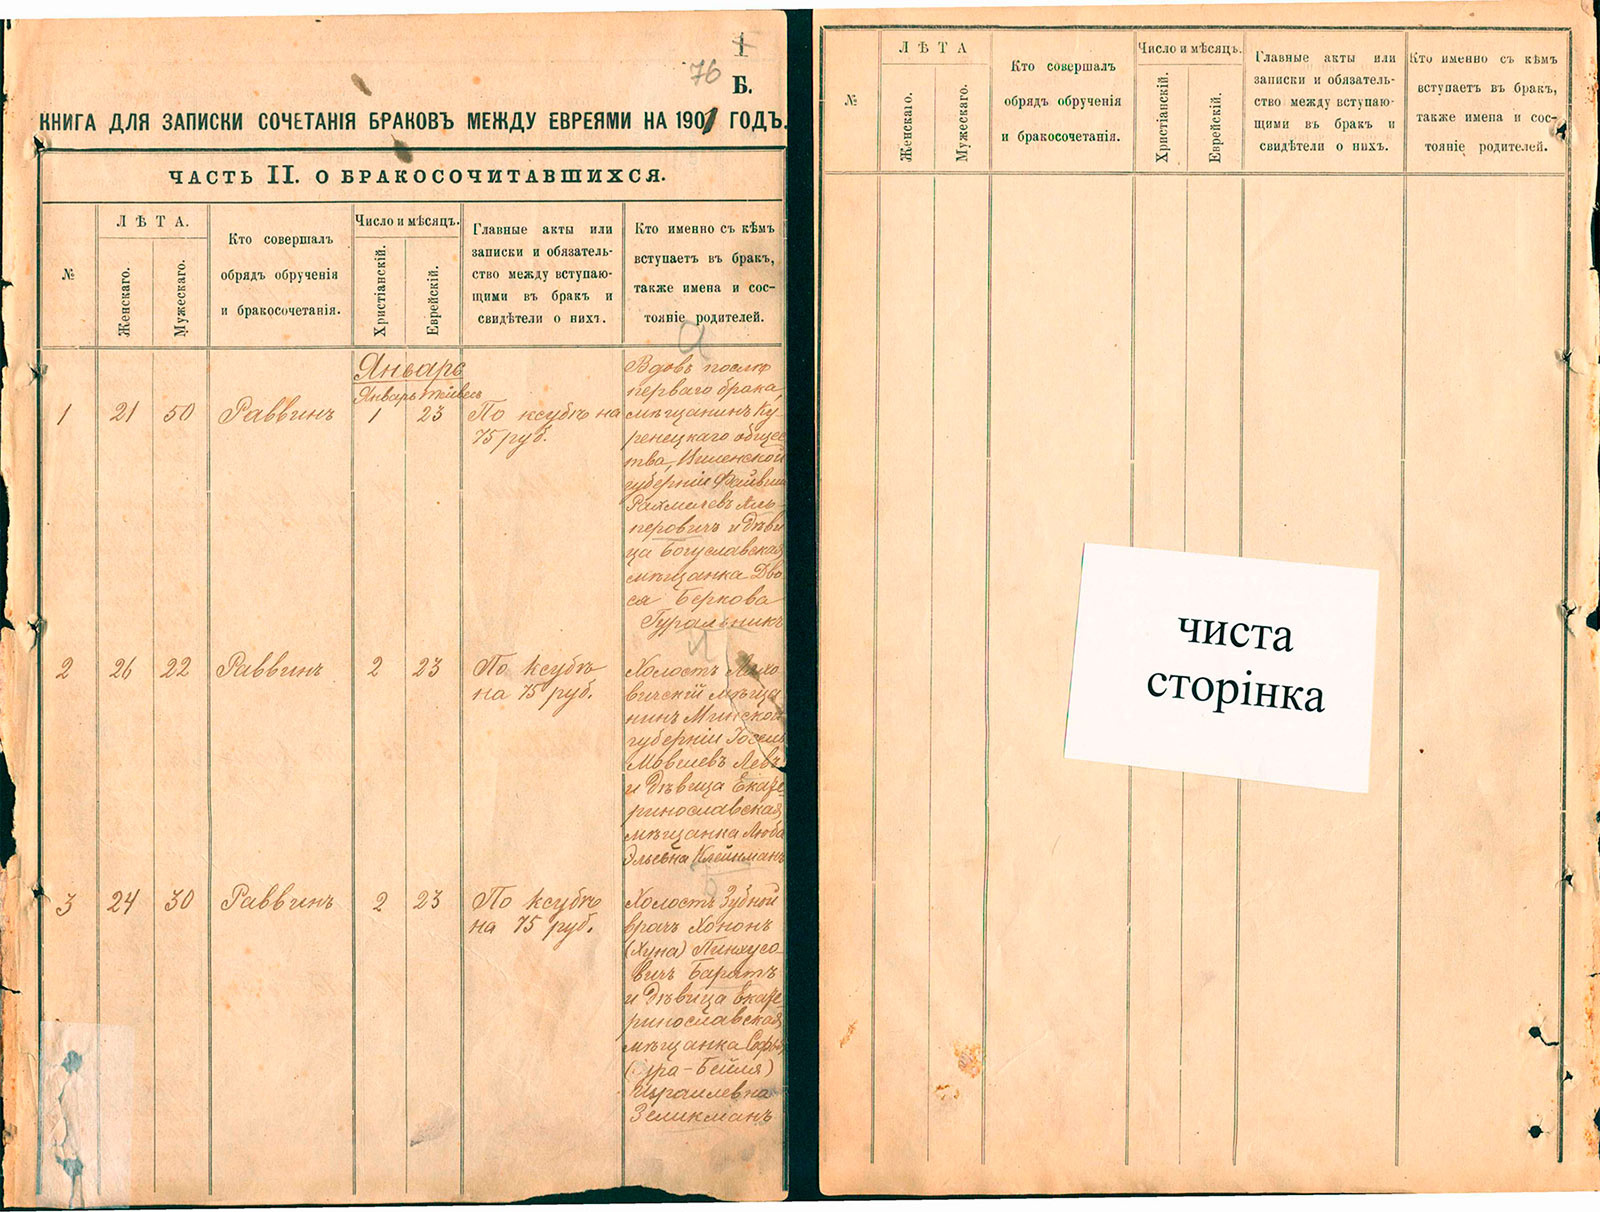 1
76
Б.
КНИГА ДЛЯ ЗАПИСКИ СОЧЕТАНІЯ БРАКОВЪ МЕЖДУ ЕВРЕЯМИ НА 1901 ГОДЪ.
ЧАСТЬ II. О БРАКОСОЧИТАВШИХСЯ.
№
ЛѢТА.
Женскаго.
Мужескаго.
Кто совершалъ
обрядъ обрученія
и бракосочетанія.
Число и мѣсяцъ.
Христіанскій.
Еврейскій.
Главные акты или
записки и обязатель-
ство между вступаю-
щими въ бракъ и
свидѣтели о нихъ.
Кто именно съ кѣмъ
вступаетъ въ бракъ,
также имена и сос-
тояніе родителей.
Январь
Январь
1
21
50
Раввинъ
1
23
По ксубѣ на
75 руб.
Вдовъ послѣ
перваго брака,
мѣщанинъ Ку-
ренецкаго общес
тва, Виленской
губерніи Файвиш
Рахмилевъ Аль-
перовичъ и дѣви
ца Богуславская
мѣщанка Дво
ся Беркова
Гуральникъ
2
26
22
Раввинъ
2
23
По ксубѣ
на 75 руб.
Холостъ Ляхо
вичскій мѣща
нинъ Минской
губерніи Іосель
Мовшевъ Левъ
и дѣвица Екате
ринославская
мѣщанка Люба
Эльевна Клейнманъ
3
24
30
Раввинъ
2
23
По ксубѣ
на 75 руб.
Холостъ Зубной
врачъ Хононъ
(Хуна) Пинхусо
вичъ Баратъ
и дѣвица Екате
ринославская
мѣщанка Софья
(Сура-Бейля)
Израилевна
Зеликманъ
№
ЛѢТА
Женскаго.
Мужескаго.
Кто совершалъ
обрядъ обрученія
и бракосочетанія.
Число и мѣсяцъ.
Христіанскій.
Еврейскій.
Главные акты или
записки и обязатель-
ство между вступаю-
щими въ бракъ и
свидѣтели о нихъ.
Кто именно съ кѣмъ
вступаетъ въ бракъ,
также имена и сос-
тояніе родителей.
чиста
сторінка